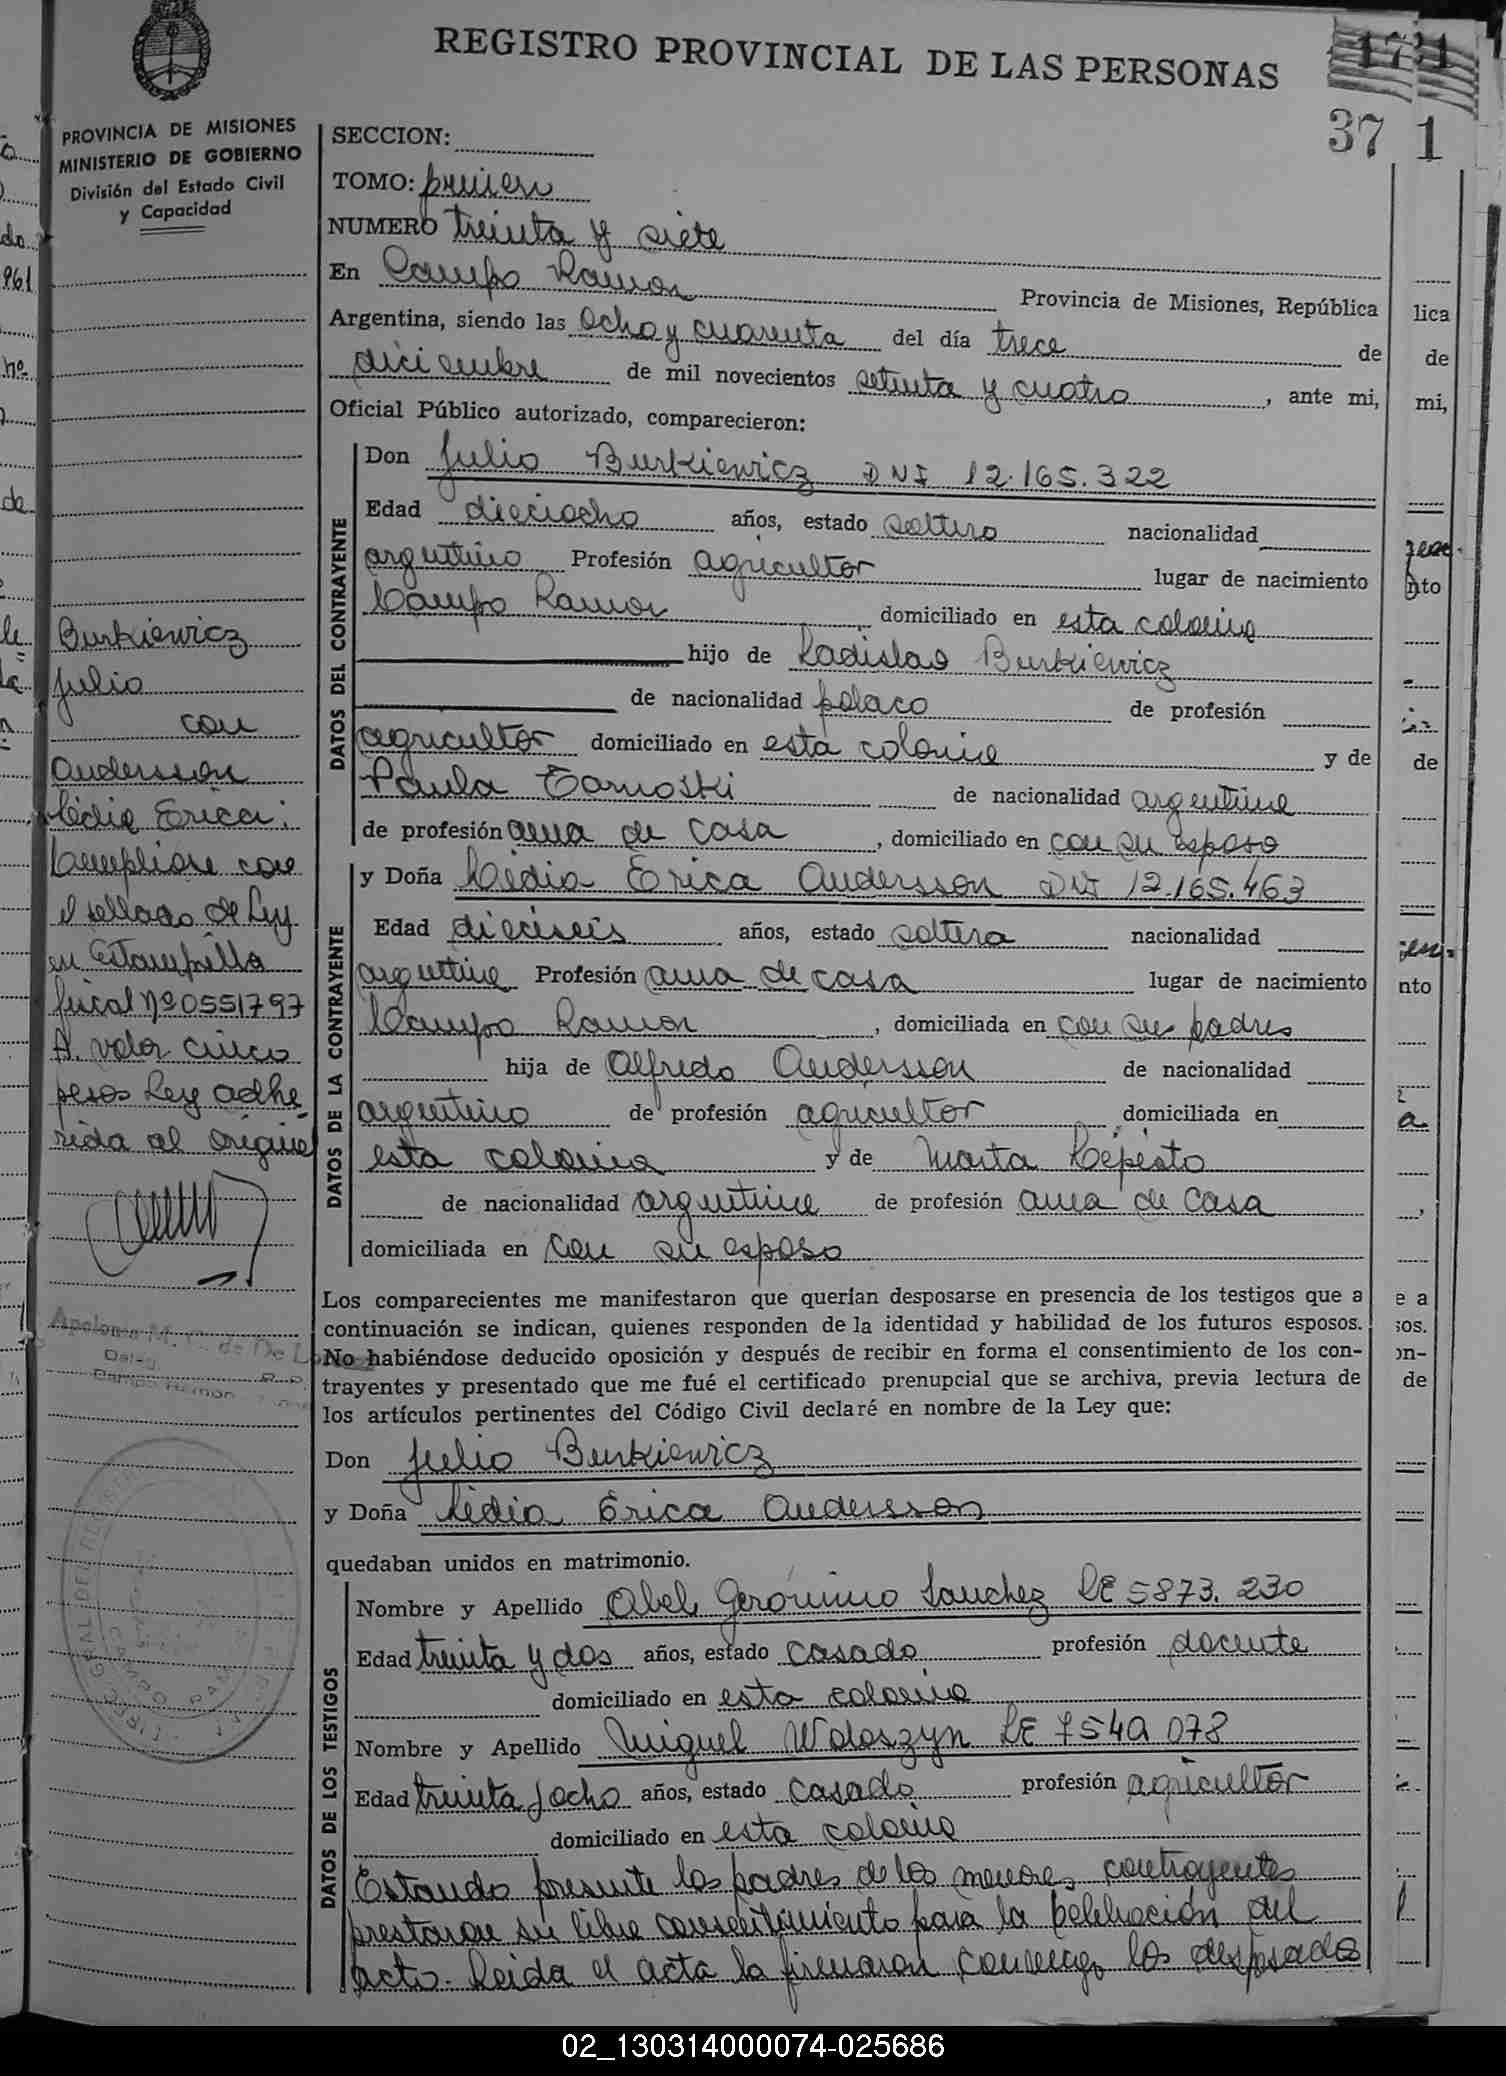 REGISTRO PROVINCIAL DE LAS PERSONAS
37 1
PROVINCIA DE MISIONES
MINISTERIO DE GOBIERNO
División del Estado Civil
y Capacidad
Burkiewicz
Julio
con
Andersson
Lidia Erica:
Cumpliose con
el sellado de Ley
en Estampilla
fiscal nº 0551797
A. valor cinco
pesos Ley adhe
rida al origine
SECCION:
TOMO: primero
NUMERO treinta y siete
En Campo Ramon Provincia de Misiones, República
Argentina, siendo las ocho y cuarenta del día trece de
diciembre de mil novecientos setenta y cuatro, ante mi,
Oficial Público autorizado, comparecieron:
DATOS DEL CONTRAYENTE
Don Julio Burkiewicz DNI 12.165.322
Edad dieciocho años, estado soltero nacionalidad
argentino Profesión agricultor lugar de nacimiento
Campo Ramon domiciliado en esta colonia
hijo de Ladislao Burkiewicz
de nacionalidad polaco de profesión
agricultor domiciliado en esta colonia y de
Paula Tarnoski de nacionalidad argentina
de profesión ama de casa, domiciliado en con su esposo
DATOS DE LA CONTRAYENTE
y Doña Lidia Erica Andersson DNI 12.165.463
Edad dieciseis años, estado soltera nacionalidad
argentina Profesión ama de casa lugar de nacimiento
Campo Ramon, domiciliada en con sus padres
hija de Alfredo Andersson de nacionalidad
argentino de profesión agricultor domiciliada en
esta colonia y de Marta
de nacionalidad argentina de profesión ama de casa
domiciliada en con su esposo
Los comparecientes me manifestaron que querían desposarse en presencia de los testigos que a
continuación se indican, quienes responden de la identidad y habilidad de los futuros esposos.
No habiéndose deducido oposición y después de recibir en forma el consentimiento de los con-
trayentes y presentado que me fué el certificado prenupcial que se archiva, previa lectura de
los artículos pertinentes del Código Civil declaré en nombre de la Ley que:
Don Julio Burkiewicz
y Doña Lidia Erica Andersson
quedaban unidos en matrimonio.
DATOS DE LOS TESTIGOS
Nombre y Apellido Abel Gerónimo Sanchez LE 5873.230
Edad treinta y dos años, estado casado profesión docente
domiciliado en esta colonia
Nombre y Apellido Miguel Woloszyn LE 7549 078
Edad treinta y ocho años, estado casado profesión agricultor
domiciliado en esta colonia
Estando presente los padres de los menores contrayentes
prestaron su libre consentimiento para la celebración del
acto. Leida el acta la firmaron conmigo los desposados
02_130314000074-025686